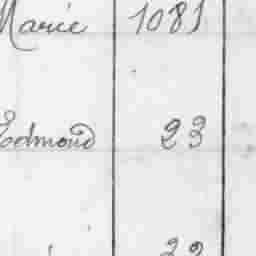 Marie 1081
Edmond 23
22